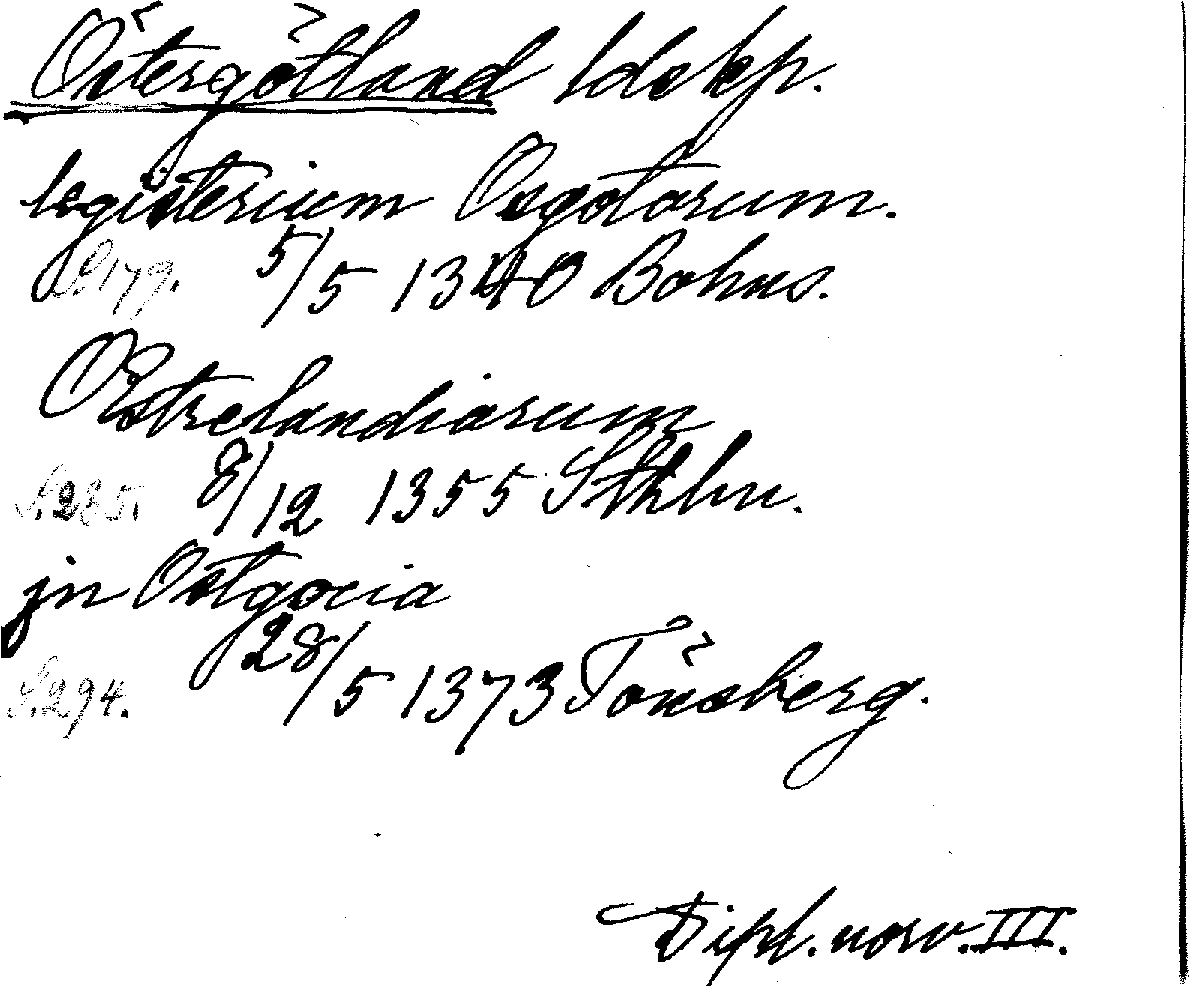 Östergötland ldskp.
legisterium Osgotorum.
S.179. 5/5 1340 Bohus.
OEstrelandiarum
S.235. 8/12 1355 Sthlm.
jn Ostgocia
S.294. 28/5 1373 Tönsberg.
Dipl. norv. III.